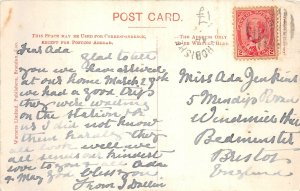 POST CARD.
THIS SPACE MAY BE USED FOR CORRESPONDENCE,
EXCEPT FOR FOREIGN ABROAD.
THE ADDRESS ONLY
TO BE WRITTEN HERE
£1
Dear Ada
Glad to tell
you we have arrived
at our home March 29th
we had a good trip
they were waiting
on the station for
us I did not know
them hardly they
all soon well we
all send our kindest
love to you all Ada
& May God bless you
from J Dallin
Miss Ada Jenkins
5 Mendip Road
Windmill Hill
Bedminster
Bristol
England